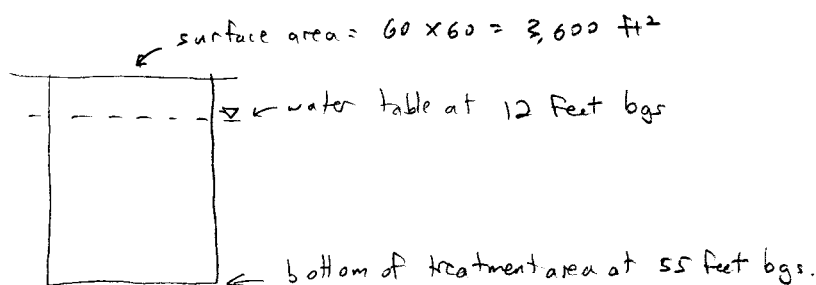 surface area = 60 x 60 = 3,600 ft²
water table at 12 feet bgs
bottom of treatment area at 55 feet bgs.